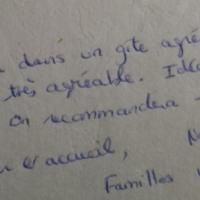 dans un gîte agré
très agréable. Idé
On recommandera
accueil,
Familles